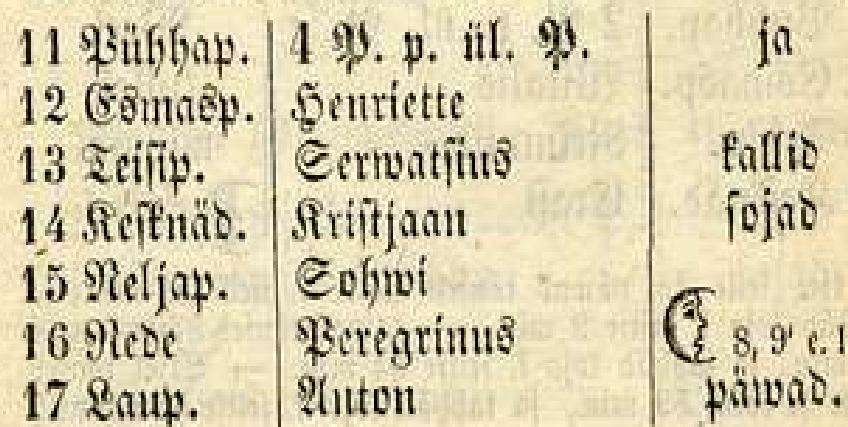 11 Pühhap. 4 P. p. ül. P. ja
12 Esmasp. Henriette
13 Teisip. Serwatsius kallid
14 Kesknäd. Kristjaan sojad
15 Neljap. Sohwi
16 Rede Peregrinus 8, 9' e. l
17 Laup. Anton päiwad.